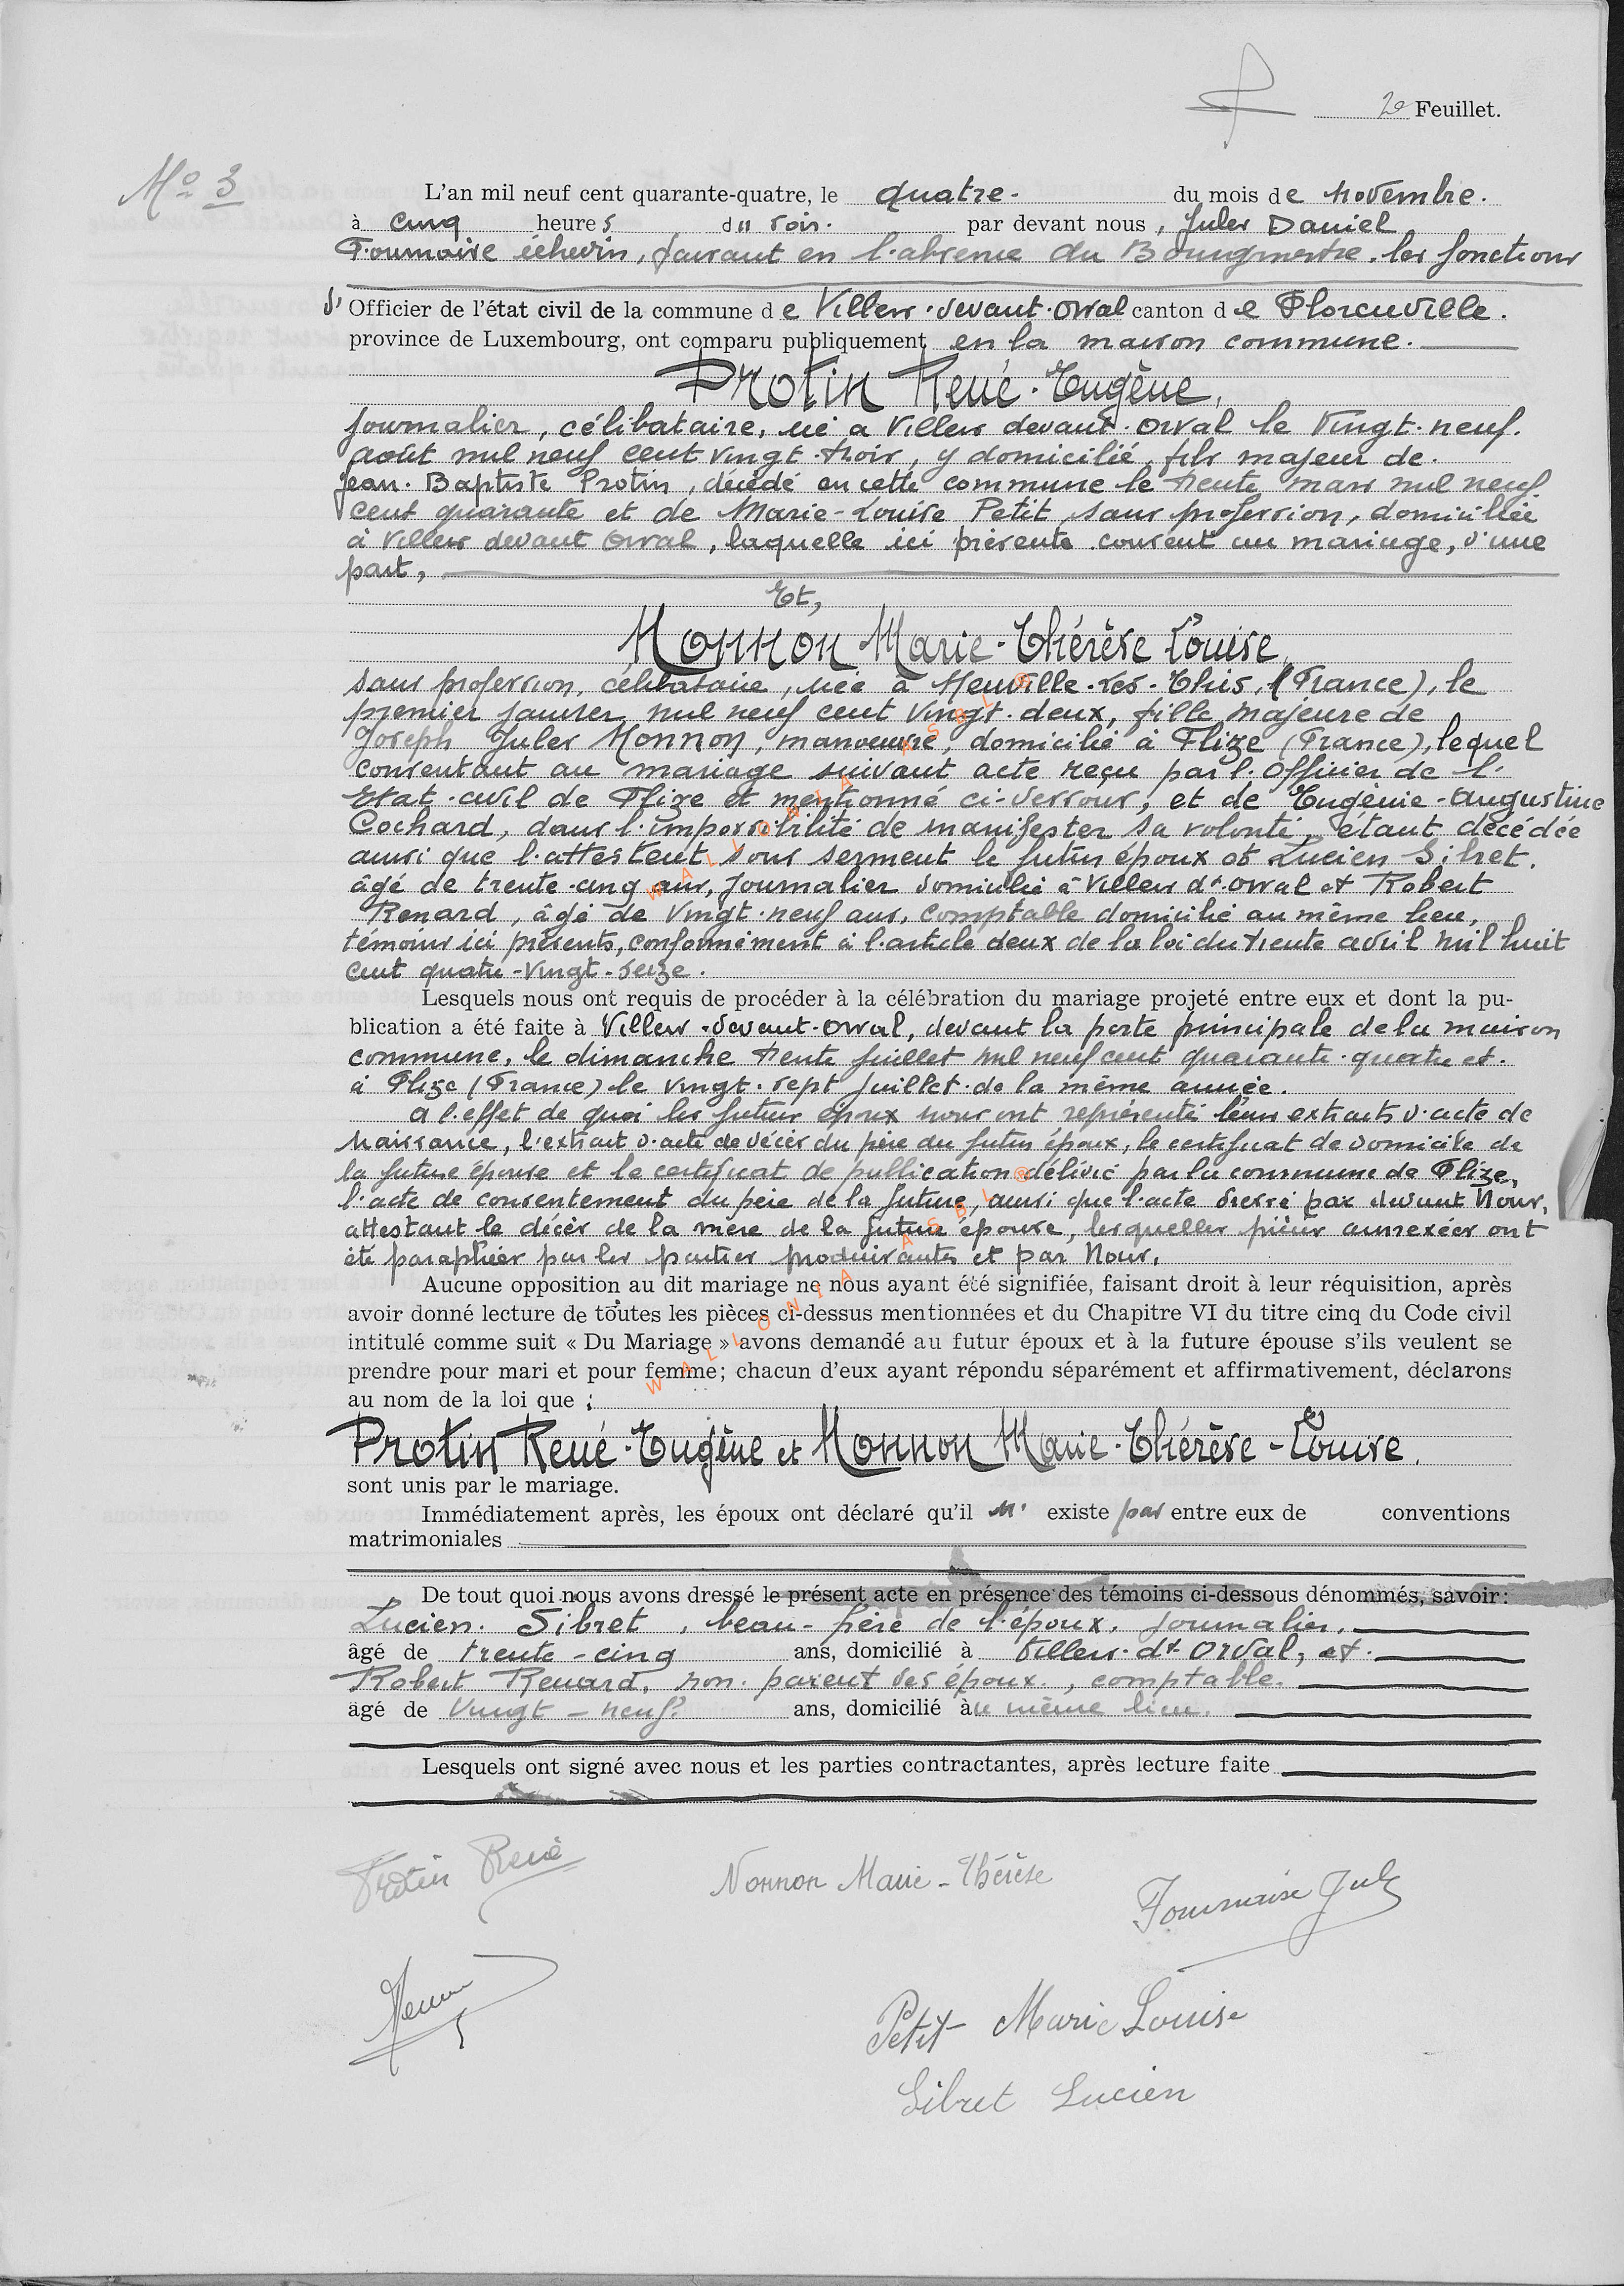 2e Feuillet.
No 3
L'an mil neuf cent quarante-quatre, le quatre du mois de novembre.
à cinq heures du soir. par devant nous, Jules Daniel
Fournaise échevin, faisant en l'absence du Bourgmestre les fonctions
d'Officier de l'état civil de la commune de Villers-devant-Orval canton de Florenville.
province de Luxembourg, ont comparu publiquement en la maison commune.
Protin René-Eugène,
journalier, célibataire, né à Villers devant-Orval le vingt-neuf
août mil neuf cent vingt-trois, y domicilié, fils majeur de
Jean-Baptiste Protin, décédé en cette commune le trente mars mil neuf
cent quarante et de Marie-Louise Petit, sans profession, domiciliée
à Villers devant Orval, laquelle ici présente consent au mariage, d'une
part,
Et,
Nonnon Marie-Thérèse Louise,
sans profession, célibataire, née à Neuville-les-This, (France), le
premier janvier mil neuf cent vingt-deux, fille majeure de
Joseph Jules Nonnon, manoeuvre, domicilié à Flize (France), lequel
consentant au mariage suivant acte reçu par l'Officier de l'
Etat-civil de Flize et mentionné ci-dessous, et de Eugènie-Augustine
Cochard, dans l'impossibilité de manifester sa volonté, étant décédée
ainsi que l'attestent sous serment le futur époux et Lucien Sibret,
âgé de trente-cinq ans, journalier domicilié à Villers dt-Orval et Robert
Renard, âgé de vingt-neuf ans, comptable domicilié au même lieu,
témoins ici présents, conformément à l'article deux de la loi du trente avril mil huit
cent quatre-vingt-seize.
Lesquels nous ont requis de procéder à la célébration du mariage projeté entre eux et dont la pu-
blication a été faite à Villers-devant-Orval, devant la porte principale de la maison
commune, le dimanche trente juillet mil neuf cent quarante-quatre et
à Flize (France) le vingt-sept juillet de la même année.
A l'effet de quoi les futurs époux nous ont représenté leurs extraits d'acte de
naissance, l'extrait d'acte de décès du père du futur époux, le certificat de domicile de
la future épouse et le certificat de publication délivré par la commune de Flize,
l'acte de consentement du père de la future, ainsi que l'acte dressé par devant Nous,
attestant le décès de la mère de la future épouse, lesquelles pièces annexées ont
été paraphées par les parties produisantes et par Nous.
Aucune opposition au dit mariage ne nous ayant été signifiée, faisant droit à leur réquisition, après
avoir donné lecture de toutes les pièces ci-dessus mentionnées et du Chapitre VI du titre cinq du Code civil
intitulé comme suit « Du Mariage » avons demandé au futur époux et à la future épouse s'ils veulent se
prendre pour mari et pour femme; chacun d'eux ayant répondu séparément et affirmativement, déclarons
au nom de la loi que :
Protin René-Eugène et Nonnon Marie-Thérèse-Louise.
sont unis par le mariage.
Immédiatement après, les époux ont déclaré qu'il n' existe pas entre eux de conventions
matrimoniales
De tout quoi nous avons dressé le présent acte en présence des témoins ci-dessous dénommés, savoir:
Lucien Sibret, beau-frère de l'époux, journalier,
âgé de trente-cinq ans, domicilié à Villers-dt-Orval, et
Robert Renard, non parent des époux, comptable.
âgé de vingt-neuf ans, domicilié àu même lieu.
Lesquels ont signé avec nous et les parties contractantes, après lecture faite
Protin René
Nonnon Marie-Thérèse
Fournaise Jules
Petit Marie Louise
Sibret Lucien
WALLONIA ASBL ®
WALLONIA ASBL ®